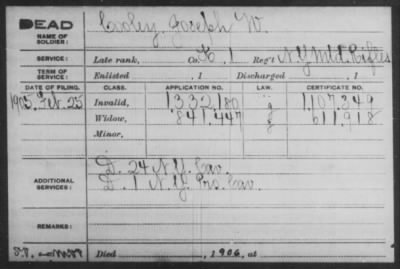 DEAD
NAME OF SOLDIER: Cooley, Joseph W.
SERVICE: Late rank, Co. K, 1 Reg't N.Y. Mtd. Rifles
TERM OF SERVICE: Enlisted , 1 Discharged , 1
DATE OF FILING. CLASS. APPLICATION NO. LAW. CERTIFICATE NO.
Invalid, 1.332.180 1.107.349
1905 Feb. 25 Widow, 841.447 611.918
Minor,
ADDITIONAL SERVICES: D. 24 N.Y. Cav.
D. 1 N.Y. Pro. Cav.
REMARKS:
Died , 1906, at